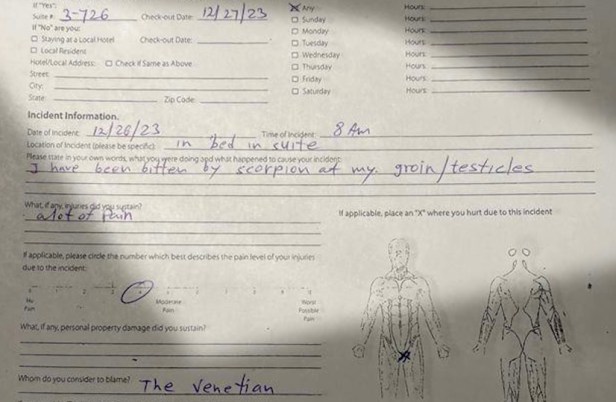 If "Yes":
Suite #: 3-726 Check-out Date: 12/27/23
If "No" are you:
Staying at a Local Hotel Check-out Date:
Local Resident
Hotel/Local Address: Check if Same as Above
Street:
City:
State: Zip Code:
Any Hours:
Sunday Hours:
Monday Hours:
Tuesday Hours:
Wednesday Hours:
Thursday Hours:
Friday Hours:
Saturday Hours:
Incident Information.
Date of Incident: 12/26/23 Time of Incident: 8 Am
Location of Incident (please be specific) in bed in suite
Please state in your own words, what you were doing and what happened to cause your incident:
I have been bitten by scorpion at my groin/testicles
What, if any, injuries did you sustain?
a lot of Pain
If applicable, please circle the number which best describes the pain level of your injuries
due to the incident:
No Pain
Moderate Pain
Worst Possible Pain
What, if any, personal property damage did you sustain?
Whom do you consider to blame? The Venetian
If applicable, place an "X" where you hurt due to this incident